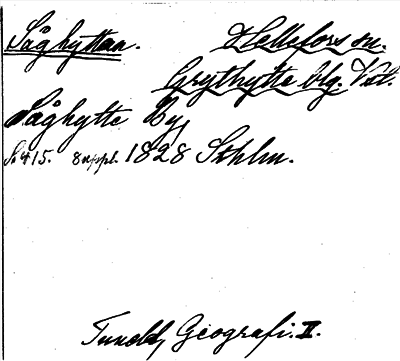 Såghyttan. Hellefors sn.
Grythytte blg. Vstl.
Såghytte By
S. 415. 8 uppl. 1828 Sthlm.
Tuneld, Geografi. II.